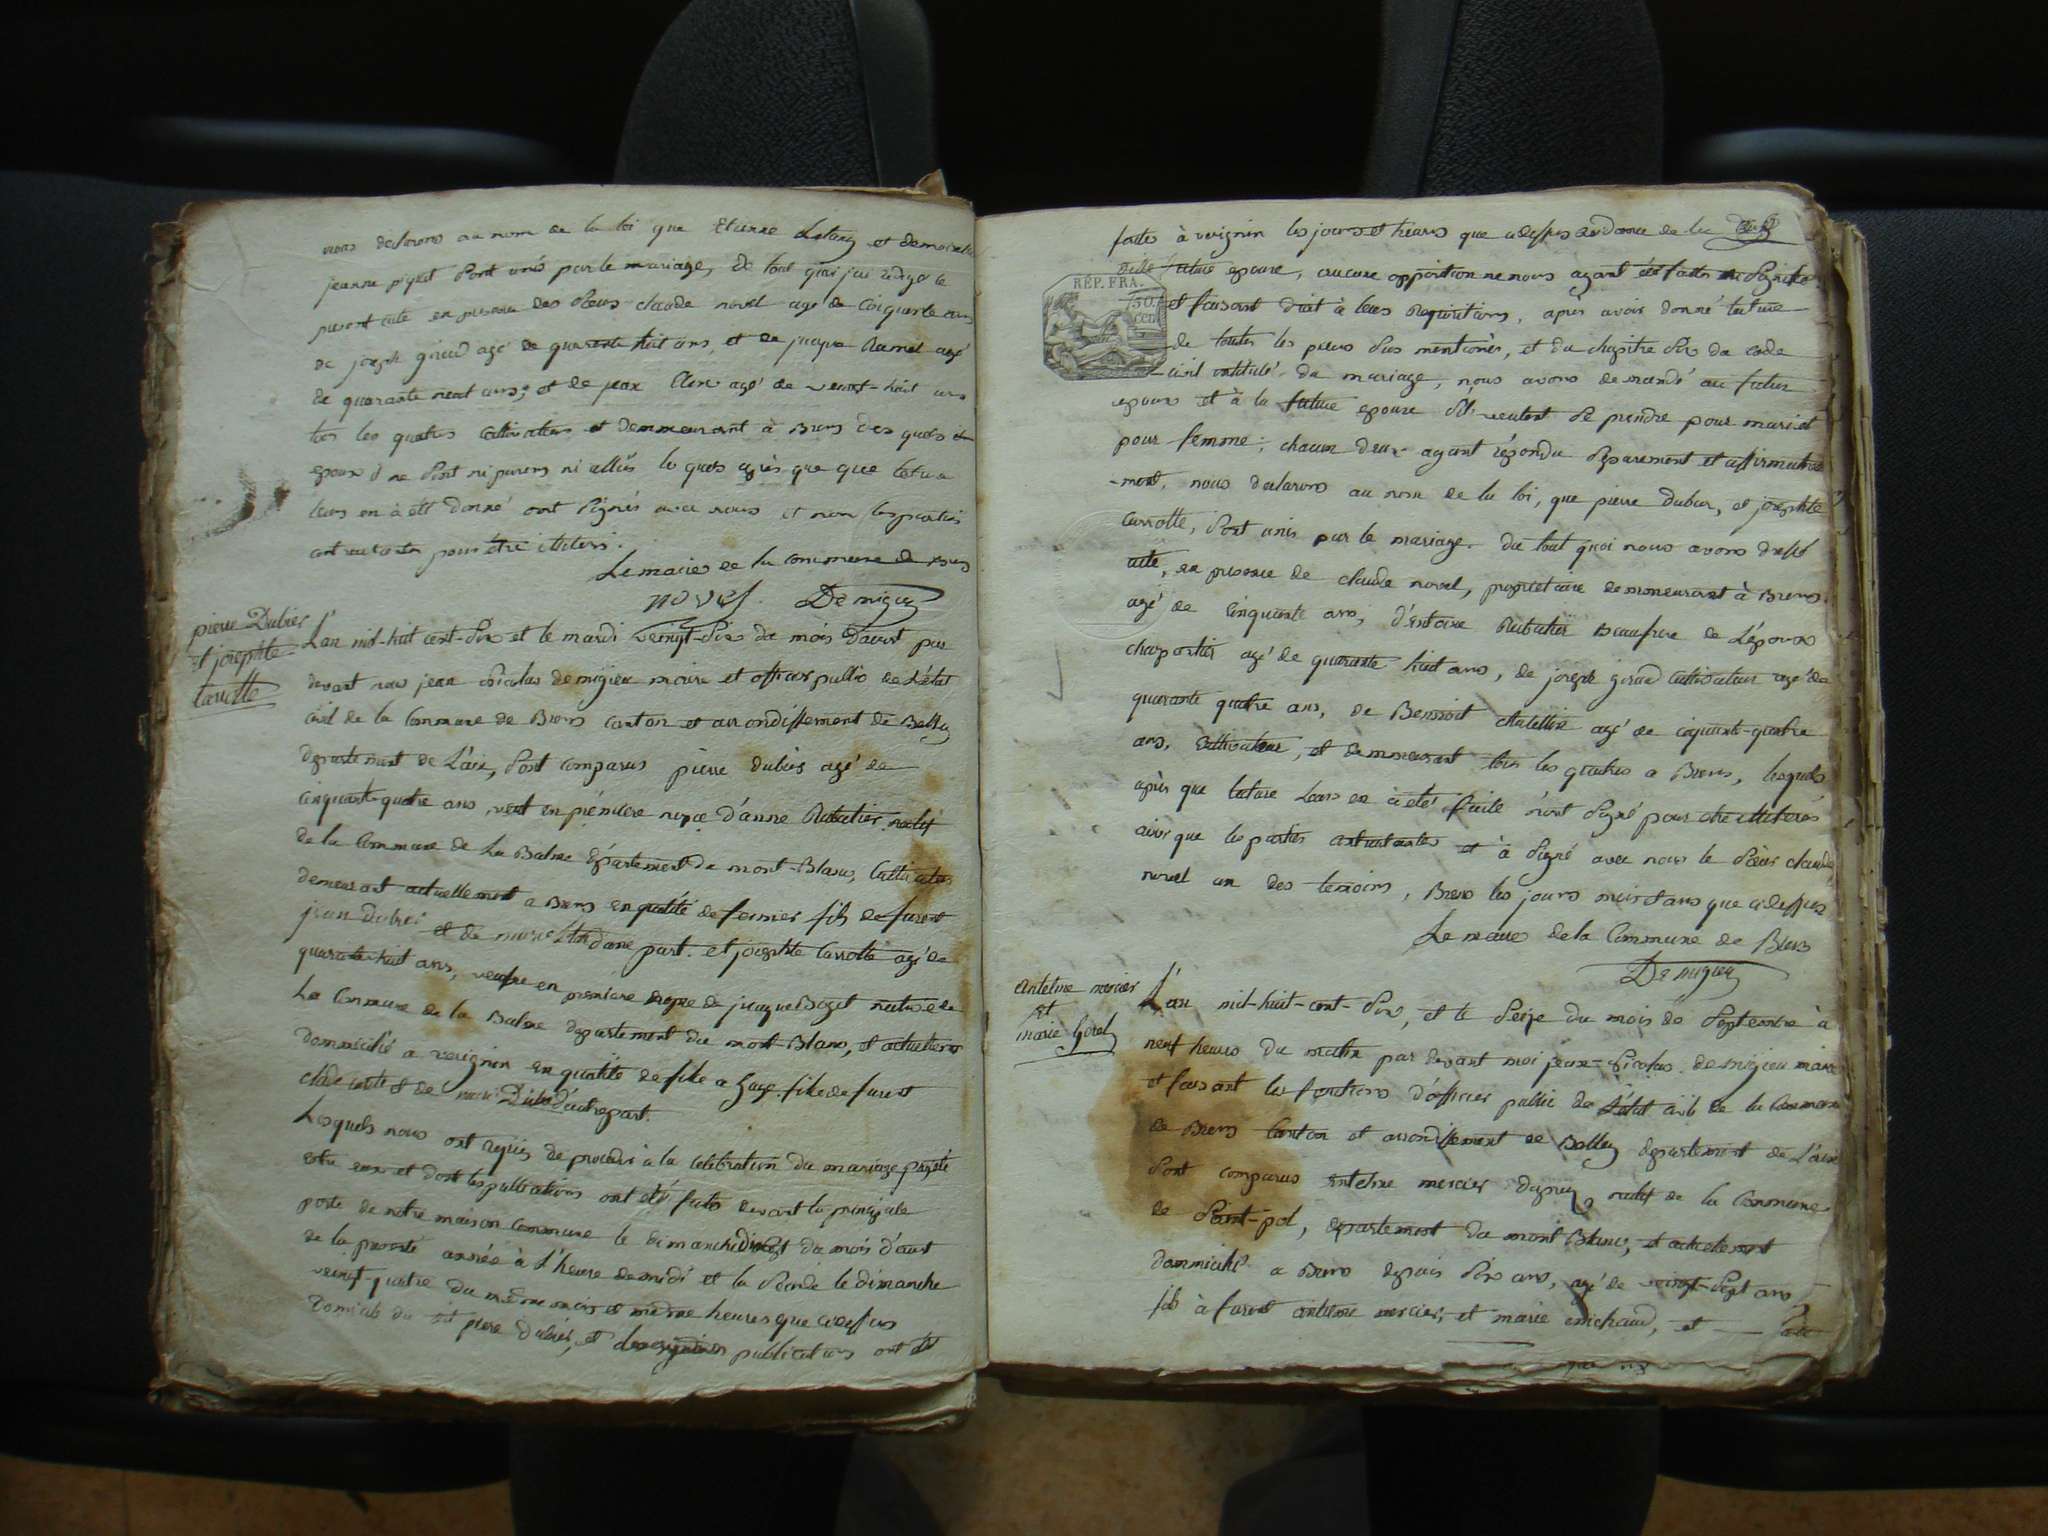 nous declarons au nom de la loi que Etienne et demoiselle
jeanne sont unis par le mariage, de tout quoi j'ai redigé le
present acte en presence des Sieurs claude novel agé de cinquante ans
de joseph girad agé de quarante huit ans, et de jaque Ramel agé
de quarante neuf ans; et de jean Clerc agé de veint-huit ans
tous les quatres cultivatteurs et demmeurant à Brens des quels
epoux ne sont ni parens ni alliés les quels après que
leurs en à été donné ont signés avec nous et non les parties
contractantes pour être illiteré.
Le maire de la commune de Brens
novel. Demigieu
pierre Dubier
et josephte
Carrotte
L'an mil-huit cent-dix et le mardi veingt-dix du mois d'aoust par
devant nous jean nicolas demigieu maire et officier public de l'état
civil de la Commune de Brens canton et arrondissement de Belley
departement de L'ain, sont comparus pierre dubier agé de
cinquante-quatre ans, veuf en première nopce d'anne Rubatier, natif
de la Commune de La Balme departement du mont-Blanc, Cultivateur
demeurant actuellement a Brens en qualité de fermier fils de furent
jean dubier et de d'une part. et josephte Carrotte agé de
quarante huit ans, veufve en première nopce de jacque native de
La Commune de la Balme departement du mont-Blanc, et actuellement
dommicilié a verignin en qualité de fille a gage. fille de furent
et de d'autre part.
Lesquels nous ont requis de proceder à la celebration du mariage projeté
entre eux et dont les publications ont été faites devant la principale
porte de notre maison commune le dimanche du mois d'aout
de la presente année à L'heure de midi et la seconde le dimanche
veingt-quatre du même mois et même heures que cidessus
Domicile du dit piere dubier, et publications ont été
faites à verignin les jours et heures que cidessus de la
future epouse, aucune opposition ne nous ayant été faite ni signifié
RÉP. FRA.
50.
cen
et faisant droit à leurs requisitions, après avoir donné lecture
de toutes les pieces sus mentionés, et du chapitre six du code
civil intitulé du mariage, nous avons demandé au futur
epoux et à la future epouse s'il veulent se prendre pour mari et
pour femme: chacun deux ayant répondu séparement et affirmative
-ment, nous declarons au nom de la loi, que pierre dubier, et josephte
Carrotte, sont unis par le mariage. du tout quoi nous avons dressé
acte, en presence de claude novel, propriétaire demmeurant à Brens
agé de cinquante ans, d'entoine Rubatier Beaufrere de L'époux
charpentier agé de quarante huit ans, de joseph girad cultivateur agé de
quarante quatre ans, de Bennoit agé de ciquante-quatre
ans, cultivateur, et demmeurant tous les quatres a Brens, lesquels
après que lecture Leurs en à été faite n'ont signé pour être illiterés
ainsi que les parties contractantes et à signé avec nous le Sieur claude
novel un des temoins, Brens les jours mois et ans que cidessus
Le maire de la Commune de Brens
Demigieu
Antelme mercier
et
marie
L'an mil-huit-cent-dix, et le seize du mois de septembre à
neuf heures du matin par devant moi jean-nicolas demigieu maire
et faisant les fonctions d'officier public de L'état civil de la Commune
de Brens canton et arrondissement de Belley departement de L'ain
sont comparus antelme mercier natif de la Commune
de Saint-pol, departement du mont Blanc, et actuelement
dommicilié a Brens depuis dix ans, agé de veingt-sept ans
fils à furent antelme mercier, et marie michaud, et